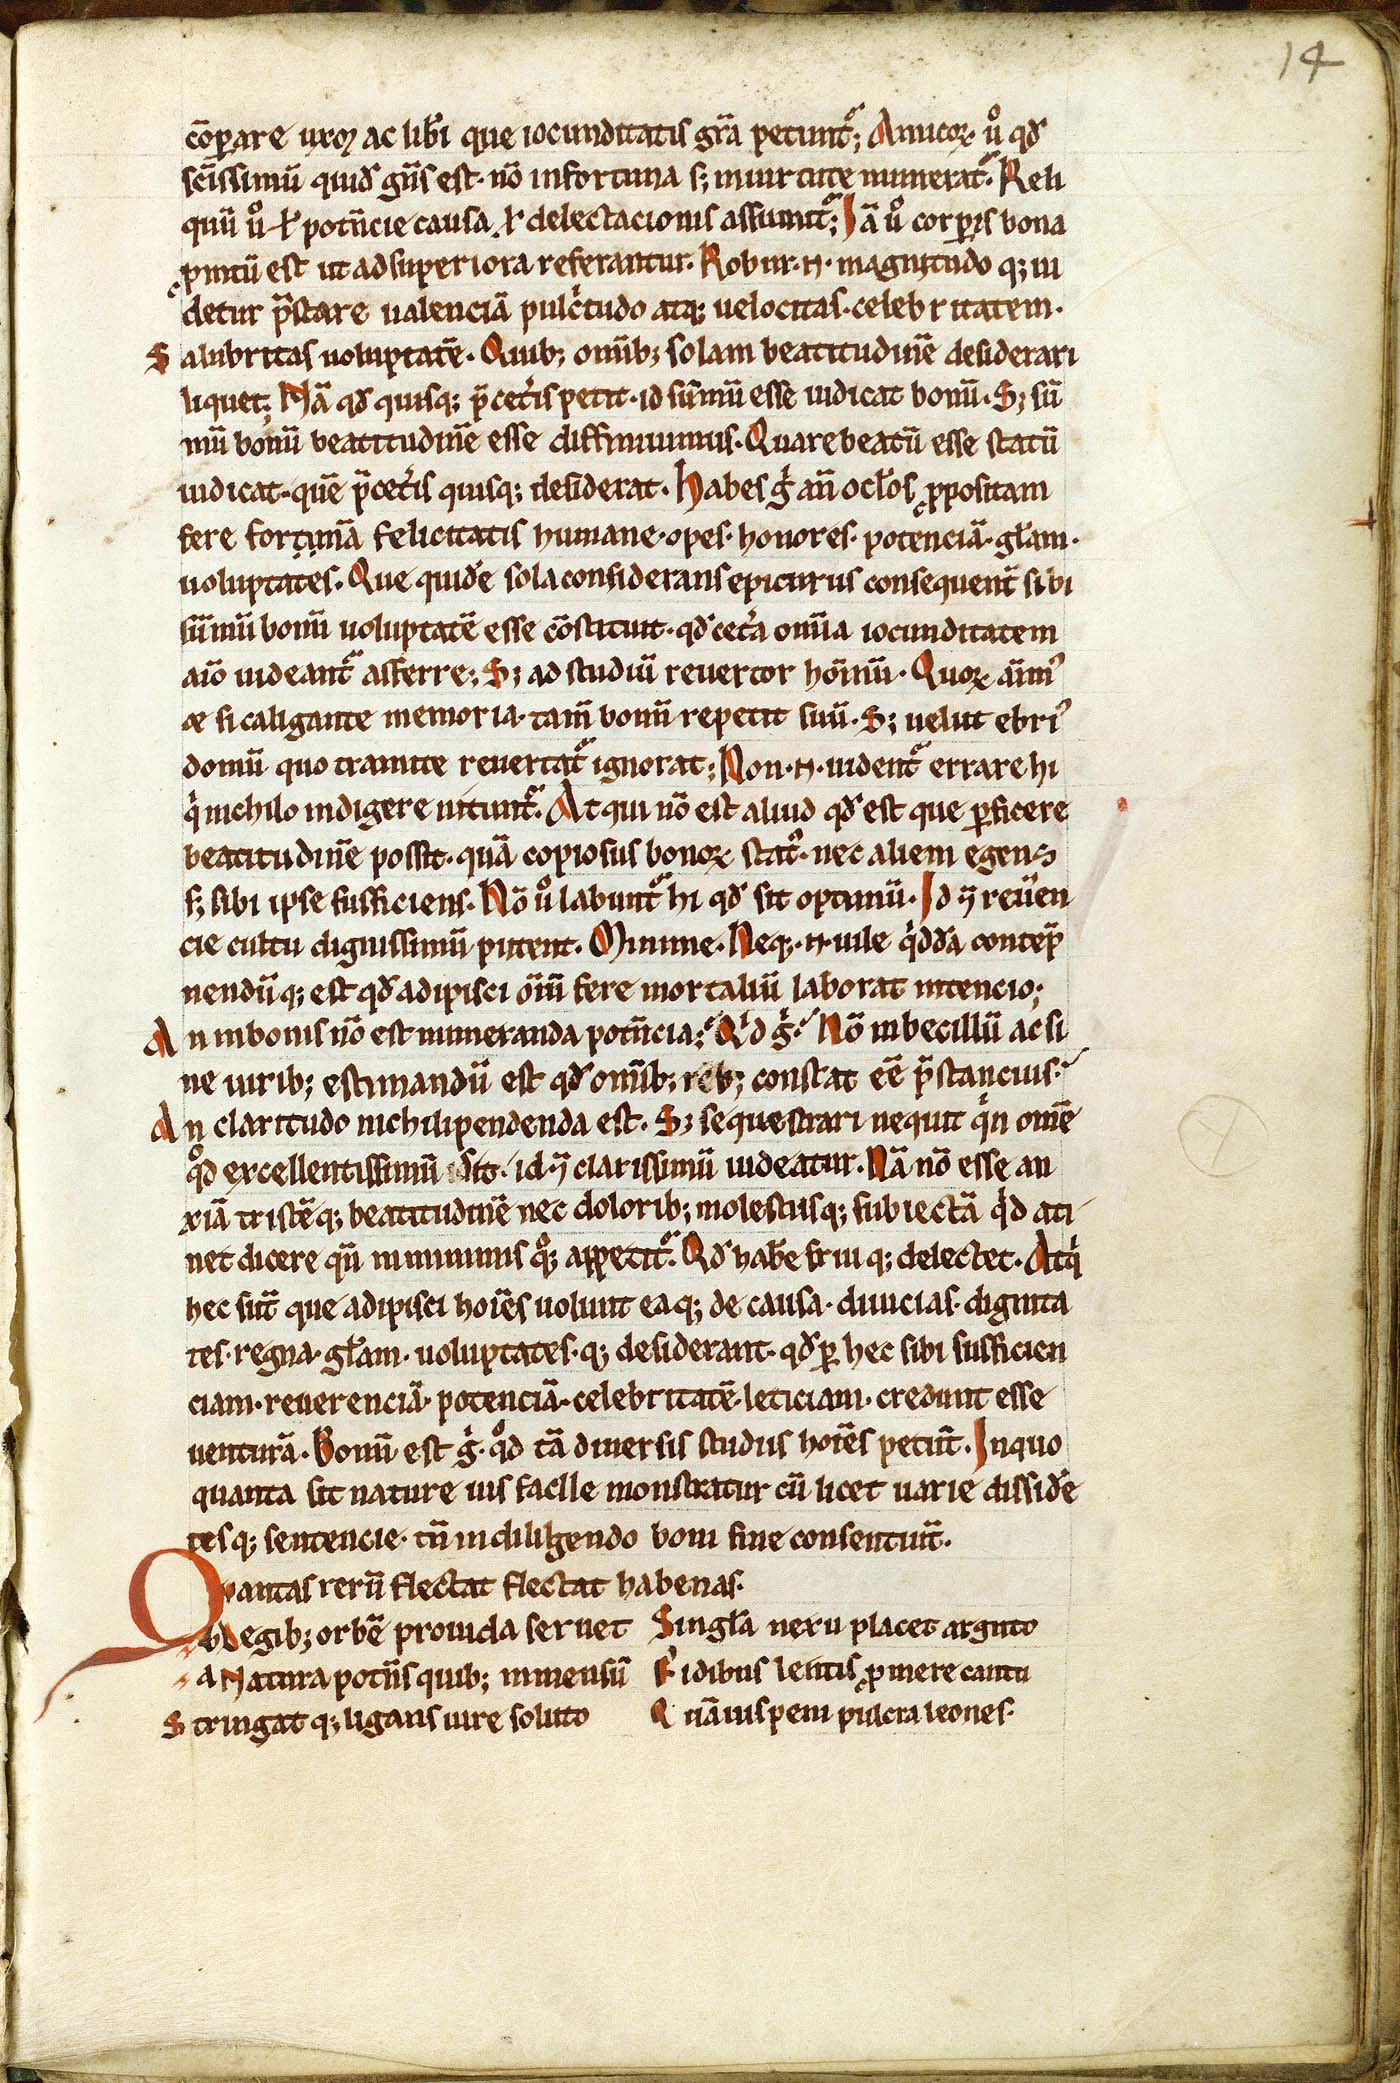 14
cōꝑare uxoꝝ ac lib̄i que iocunditatis gr̄a petunt᷑; Amicoꝝ ů qđ
scīssimū quiđ gn̄s est· nō in fortuna s; in uirtute numerat᷑. Reli
quū ů ł potn̄cie causa ł delectacionis assumit᷑; Iā ů corꝑis bona
ꝓmtū est ut ad superiora referantur. Robur ·n· magnitudo q; ui
detur p̄stare ualenciā pulc̓tudo atq; uelocitas· celebritatem·
Salubritas uoluptatē· Quib; omīb; solam beatitudinē desiderari
liquet; Nā qđ quisq; p̄ cet̓is petit· id sūmū esse iudicat bonū· S; sū
mū bonū beatitudinē esse diffiniuimus· Quare beatū esse statū
iudicat· quē p̄ cet̓is quisq; desiderat· Habes gͥ an̄ ocl̓os ꝓpositam
fere fortunā felicitatis humane· opes· honores· potenciā· gl̓am·
uoluptates· Que quidē sola considerans epicurus consequent᷑ sibi
sūmū bonū uoluptatē esse cōstituit· qđ cet̓a omīa iocunditatem
aīo uideant᷑ afferre; S; ad studiū reuertor hoīnū· Quoꝝ aīm᷒
& si caligante memoria· tam̄ bonū repetit suū· S; uelut ebri᷒
domū quo tramite reuertat᷑ ignorat; Non ·n· uident᷑ errare hi
qͥ nichilo indigere nitunt᷑. At qui nō est aliud qđ est que ꝑficere
beatitudinē possit· quā copiosus bonoꝝ stat᷒· nec alieni egens
s; sibi ipse sufficiens· Nō ů labunt᷑ hi qđ sit optimū· Id ⁊ reuēn
cie cultu dignissimū putent· Minime· Neq; ·n· uile qͥddā contēp
nendūq; est qđ adipisci oīm̄ fere mortaliū laborat intencio;
An in bonis nō est numeranda potn̄cia; Qͥd gͥ· Nō inbecillū ac si
ne uirib; estimandū est qđ omīb; reb; constat eē p̄stancius·
An claritudo nichilipendenda est· S; sequestrari nequit qͥn omē
qđ excellentissimū sit· id ⁊ clarissimū uideatur. Nā nō esse an
xiā tristēq; beatitudinē nec dolorib; molestusq; subiectā qͥd ati
net dicere qn̄ in minimis qͦ; appetit᷑· Qđ hab̄e frui q; delectet· Atqͥ
hec sūt que adipisci hoīes uolunt eaq; de causa· diuicias· dignita
tes· regna· gl̓am· uoluptates· q; desiderant· qđ ꝑ hec sibi sufficien
ciam· reuerenciā· potenciā· celebritatē· leticiam· credunt esse
uenturā· Bonū est gͥ qđ tā diuersis studiis hoīes petūt· In quo
quanta sit nature uis facile monstratur cū licet uarie dissidē
tesq; sentencie· tn̄ in diligendo boni fine consentiūt·
Quantas rerū flectat flectat habenas·
Legib; orbē prouida seruet
Natura potn̄s quib; inmensū
Stringat q; ligans iure soluto
Singl̓a nexu placet arguto
Fidibus lentis ꝓmere cantu
Quāuis peni pulcra leones·